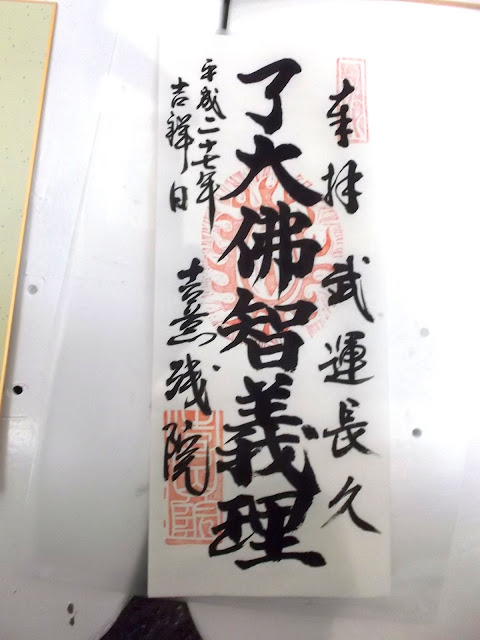 奉拝 武運長久
了大佛智義理
平成二十七年
吉祥日
院